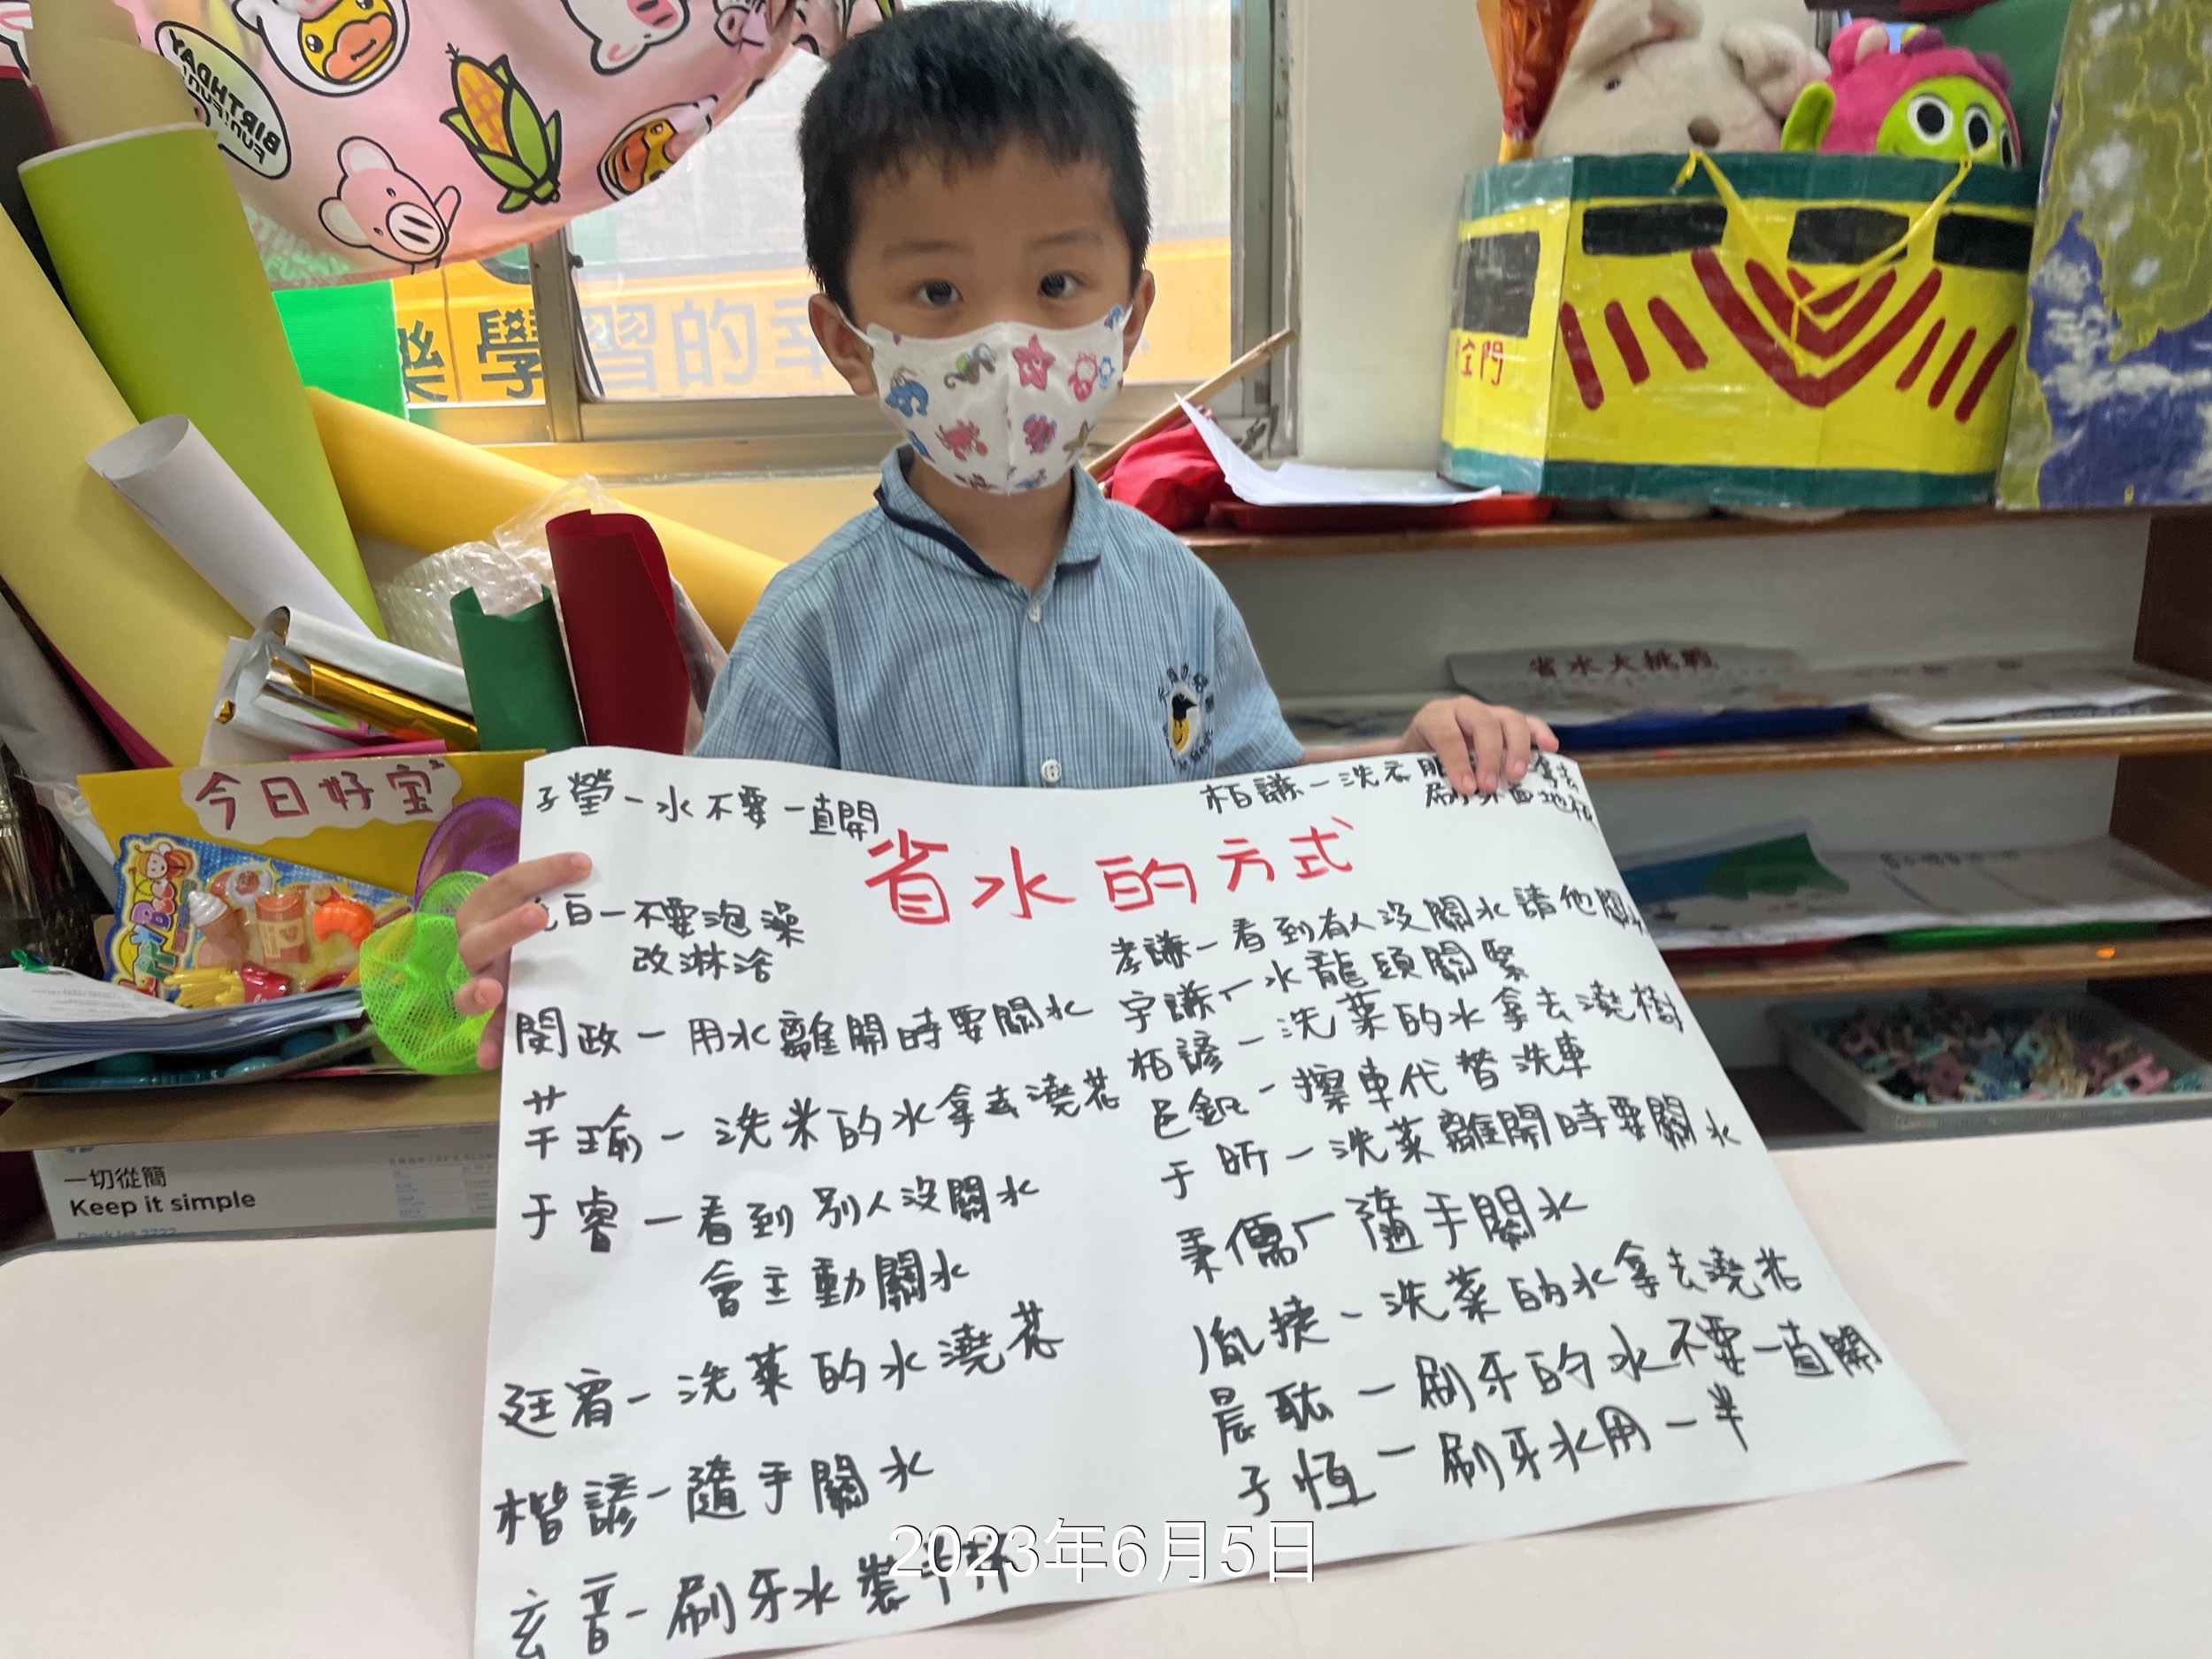 BIRTHDAY
FUN!FUN!
樂學習的幸
全門
省水大挑戰
今日好宝
一切從簡
Keep it simple
DeskJet 2722
省水的方式
子瑩－水不要一直開
百－不要泡澡
改淋浴
閔政－用水離開時要關水
芊瑜－洗米的水拿去澆花
于睿－看到別人沒關水
會主動關水
廷宥－洗菜的水澆花
楷諺－隨手關水
玄音－刷牙水裝半杯
柏謙－洗衣 拿去
刷 地板
孝謙－看到有人沒關水請他關
宇謙－水龍頭關緊
柏諺－洗菜的水拿去澆樹
邑鈊－擦車代替洗車
于昕－洗菜離開時要關水
秉儒－隨手關水
胤捷－洗菜的水拿去澆花
晨耘－刷牙的水不要一直開
子恆－刷牙水用一半
2023年6月5日